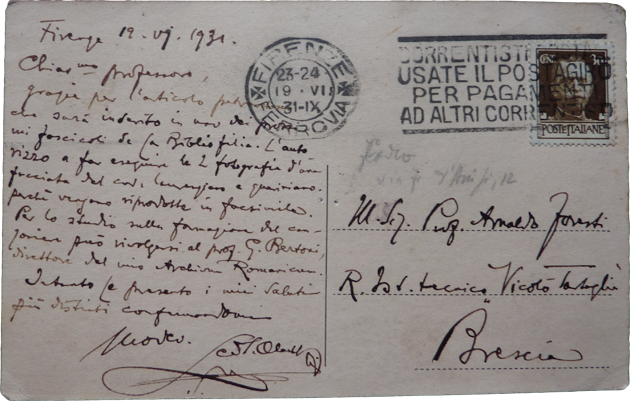 Firenze 19.VI.1931.
Chiar.mo professore,
grazie per l'articolo
che sarà inserito in uno dei
fascicoli de La Bibliofilia. L'auto
rizzo a far eseguire le 2 fotografie d'una
facciata del cod. laurenziano e queriniano
perché vengano riprodotte in facsimile.
Per lo studio sulla formazione del can-
zoniere può rivolgersi al prof. G. Bertoni,
direttore del mio Archivum Romanicum.
Intanto Le presento i miei saluti
più distinti confermandomi
FIRENZE
23-24
19·VI
31-IX
FERROVIA
CORRENTISTI
USATE IL POSTAGIRO
PER PAGAMENTI
AD ALTRI CORR
POSTE ITALIANE
12
Ill. Sig. Prof. Arnaldo Foresti
R. Ist. tecnico "Nicolò Tartaglia
Brescia